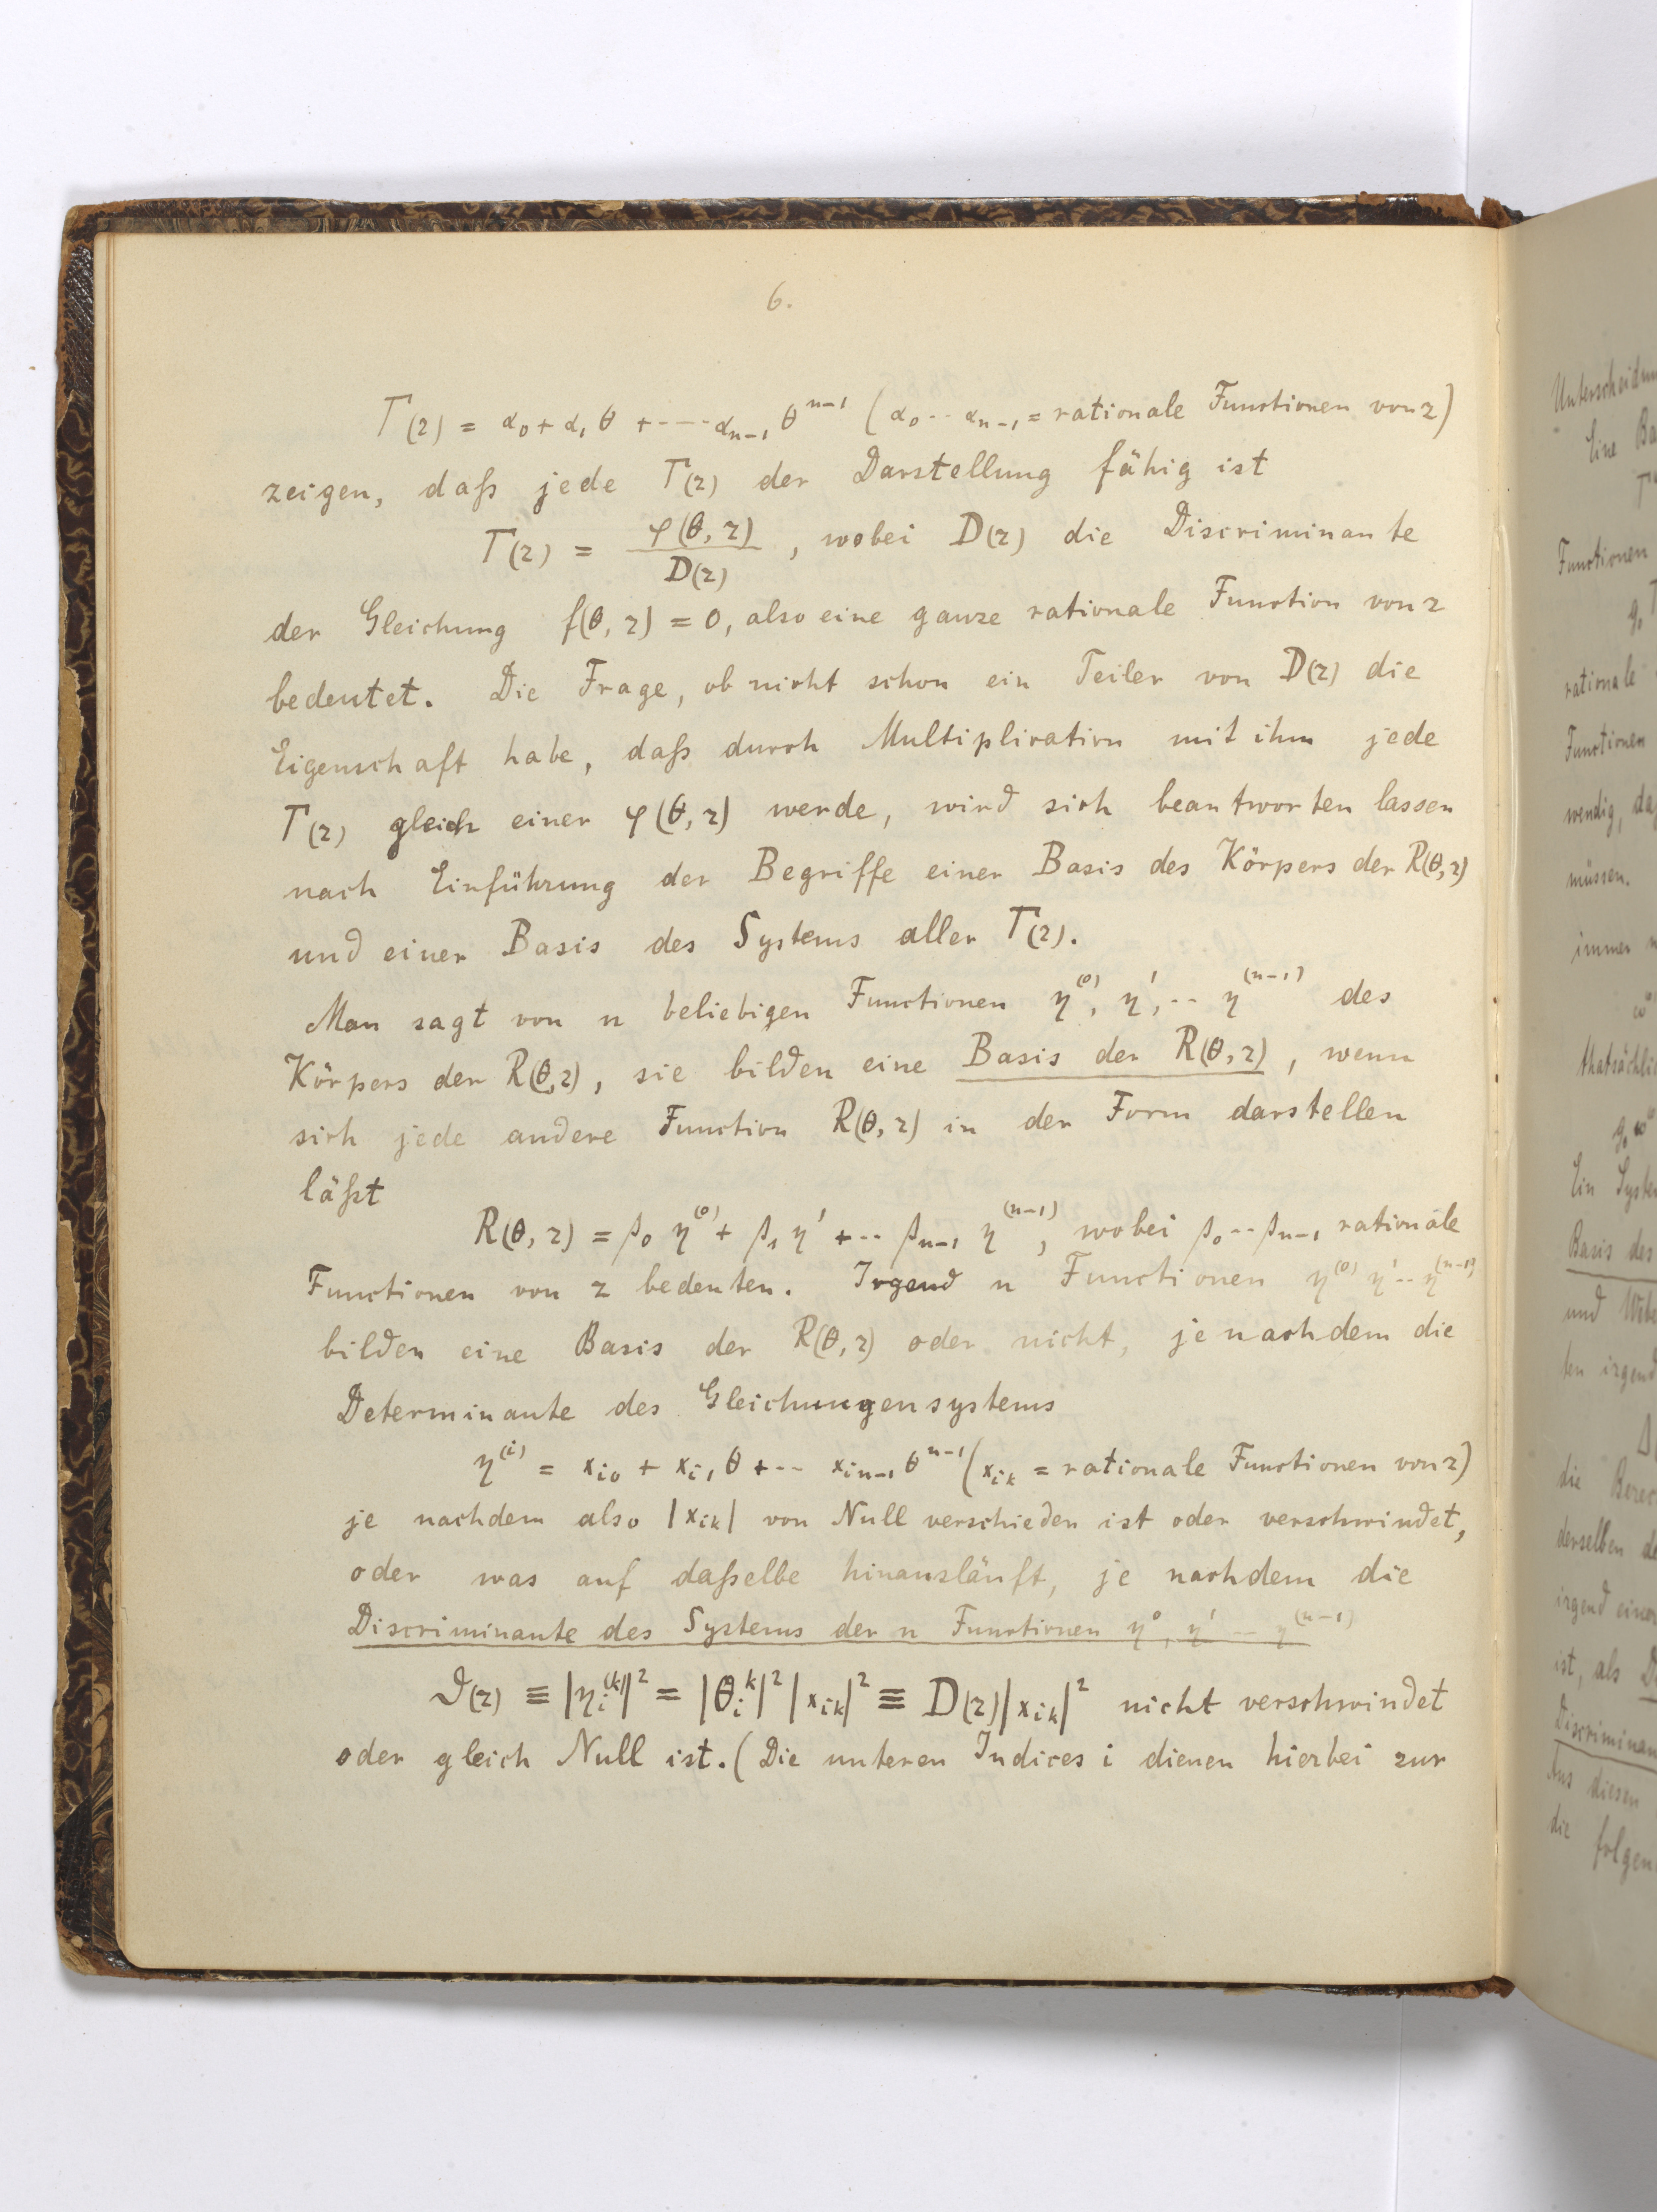 6.
T(z) = α₀ + α₁ θ + ---- αₙ₋₁ θⁿ⁻¹ (α₀ -- αₙ₋₁ = rationale Functionen von z)
zeigen, daß jede T(z) der Darstellung fähig ist
T(z) = φ(θ, z) / D(z), wobei D(z) die Discriminante
der Gleichung f(θ, z) = 0, also eine ganze rationale Function von z
bedeutet. Die Frage, ob nicht schon ein Teiler von D(z) die
Eigenschaft habe, daß durch Multiplication mit ihm jede
T(z) gleich einer φ(θ, z) werde, wird sich beantworten lassen
nach Einführung der Begriffe einer Basis des Körpers der R(θ, z)
und einer Basis des Systems aller T(z).
Man sagt von n beliebigen Functionen η⁽⁰⁾, η', -- η⁽ⁿ⁻¹⁾ des
Körpers der R(θ, z), sie bilden eine Basis der R(θ, z), wenn
sich jede andere Function R(θ, z) in der Form darstellen
läßt
R(θ, z) = β₀ η⁽⁰⁾ + β₁ η' + -- βₙ₋₁ η⁽ⁿ⁻¹⁾, wobei β₀ -- βₙ₋₁ rationale
Functionen von z bedeuten. Irgend n Functionen η⁽⁰⁾ η' -- η⁽ⁿ⁻¹⁾
bilden eine Basis der R(θ, z) oder nicht, je nachdem die
Determinante des Gleichungensystems
η⁽ⁱ⁾ = xᵢ₀ + xᵢ₁ θ + -- xᵢₙ₋₁ θⁿ⁻¹ (xᵢₖ = rationale Functionen von z)
je nachdem also |xᵢₖ| von Null verschieden ist oder verschwindet,
oder was auf daßelbe hinausläuft, je nachdem die
Discriminante des Systems der n Functionen η⁰, η' -- η⁽ⁿ⁻¹⁾
ϑ(z) ≡ |ηᵢ⁽ᵏ⁾|² = |θᵢᵏ|² |xᵢₖ|² ≡ D(z) |xᵢₖ|² nicht verschwindet
oder gleich Null ist. (Die unteren Indices i dienen hierbei zur
Functionen
rationale
Functionen
müssen.
immer
Ein
Basis des
und
die
derselben
ist, als
Aus diesen
die